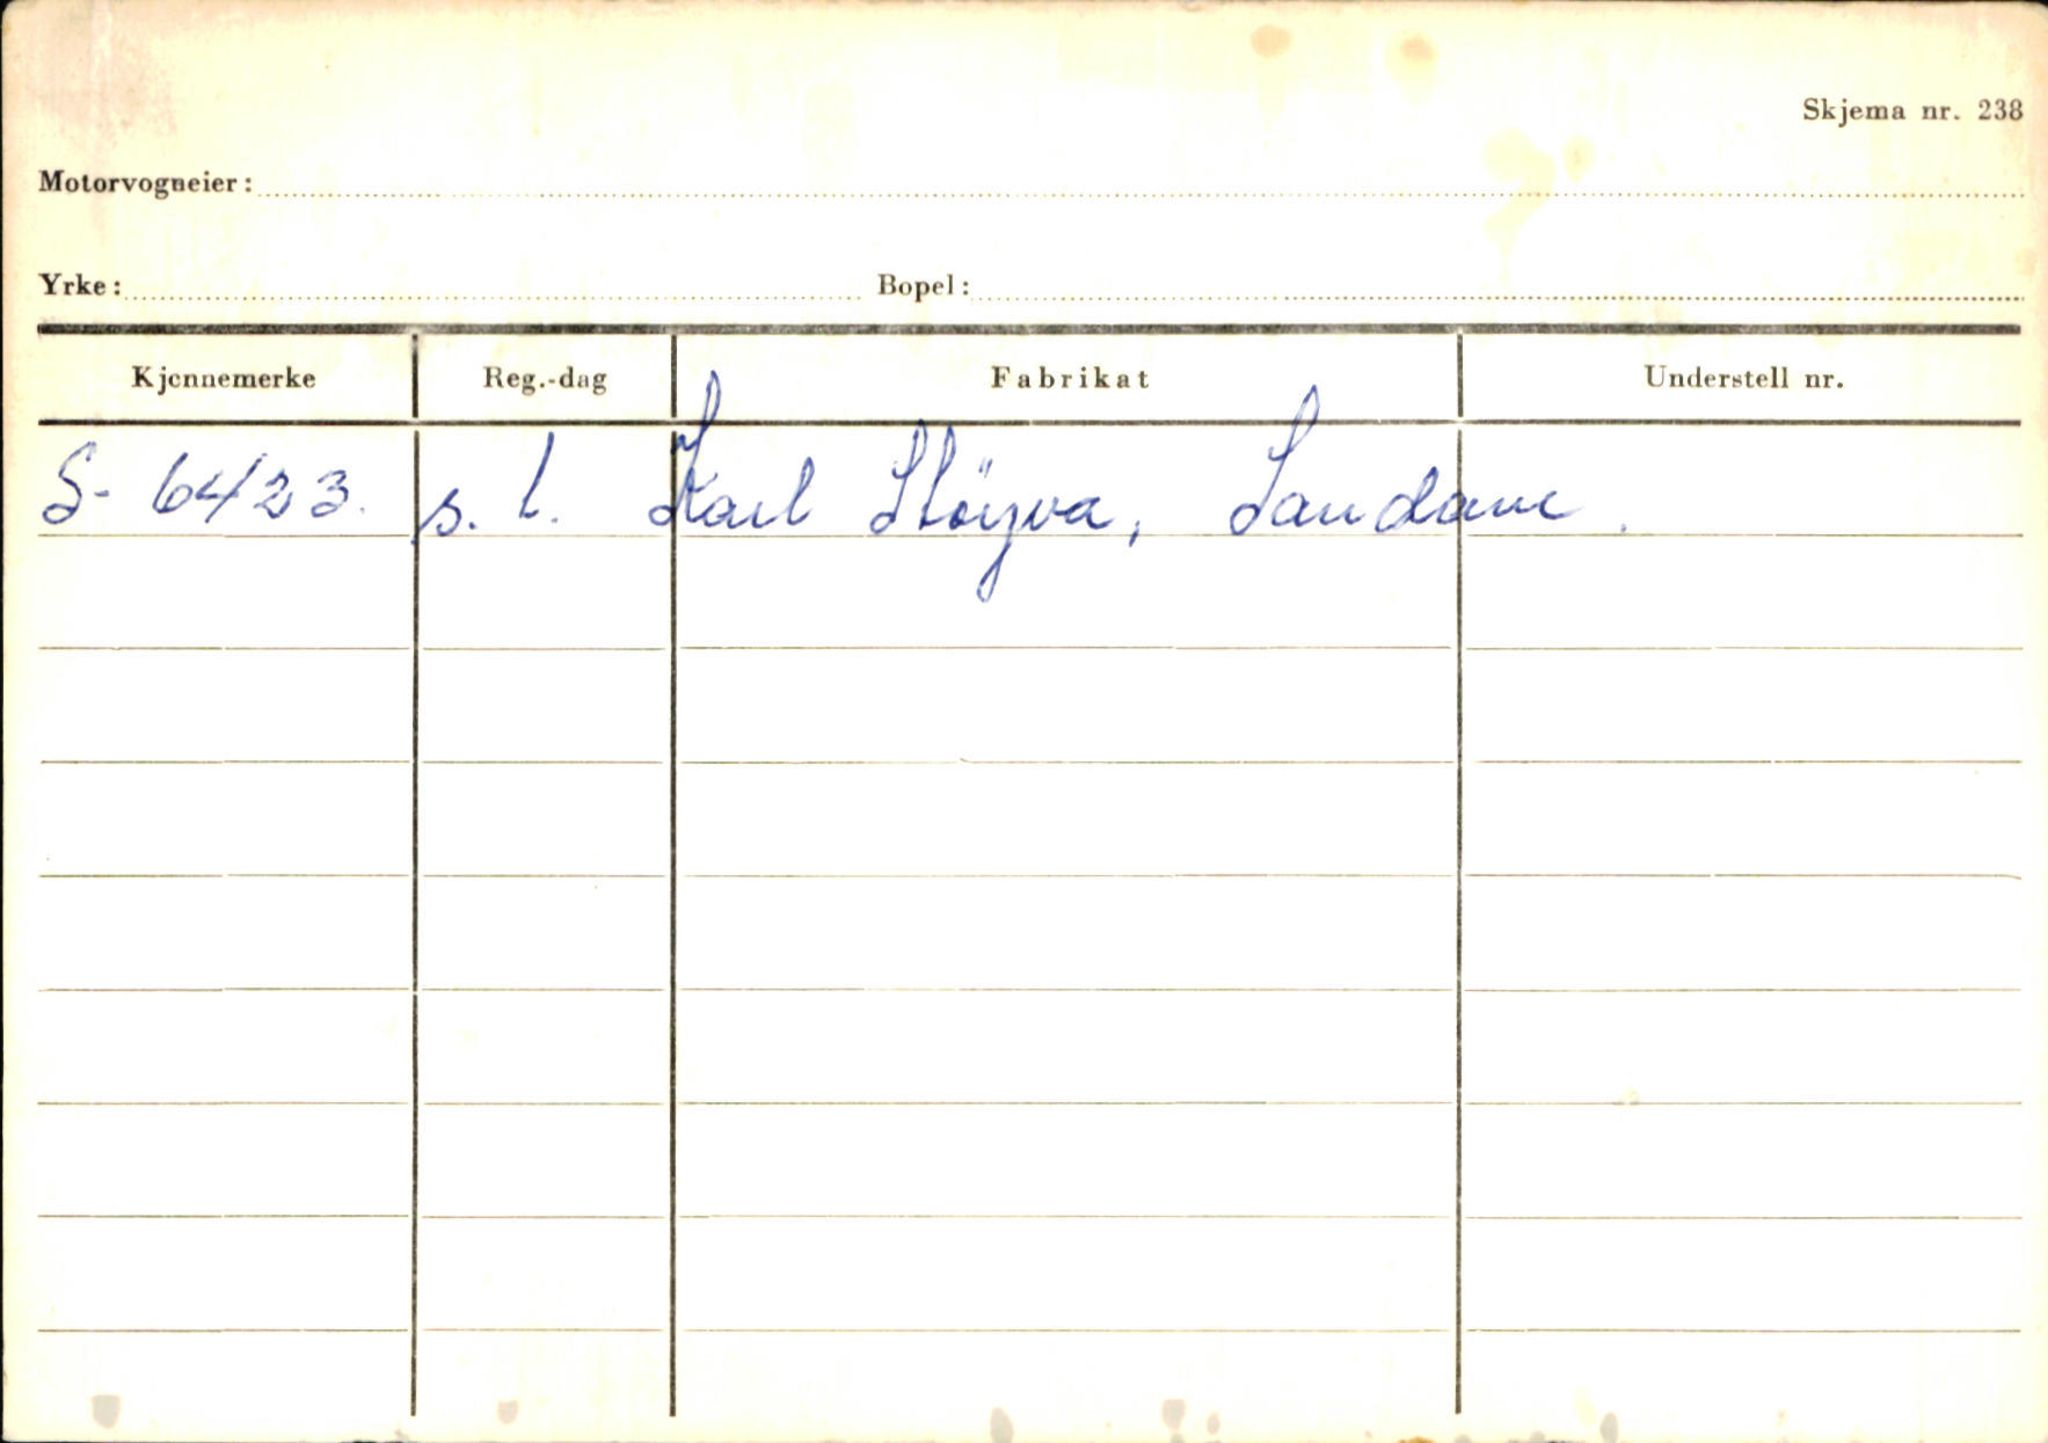 Skjema nr. 238
Motorvogneier:
Yrke: Bopel:
Kjennemerke Reg.-dag Fabrikat Understell nr.
S- 6423. s. t. Karl Støyva, Sandane.